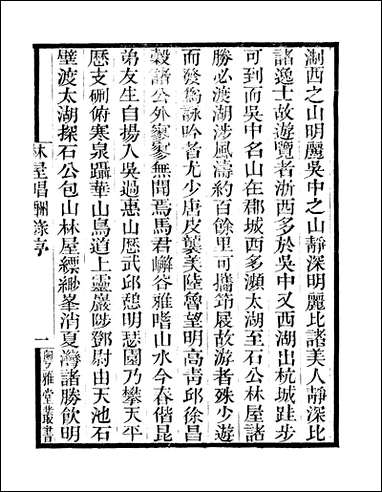 淛西之山明麗吳中之山靜深明麗比諸美人靜深比
諸逸士故遊覽者浙西多於吳中又西湖出杭城跬步
可到而吳中名山在郡城西多瀕太湖至石公林屋諸
勝必渡湖涉風濤約百餘里可攜笻屐故游者殊少遊
而發爲詠吟者尤少唐皮襲美陸魯望明高靑邱徐昌
穀諸公外寥寥無聞焉馬君嶰谷雅嗜山水今春偕昆
弟友生自揚入吳過惠山歷武邱憩明瑟園乃攀天平
歷支硎俯寒泉躡華山鳥道上靈巖陟鄧尉由天池石
壁渡太湖探石公包山林屋縹緲峯消夏灣諸勝飲明
林屋唱酬錄序
一
粵雅堂叢書